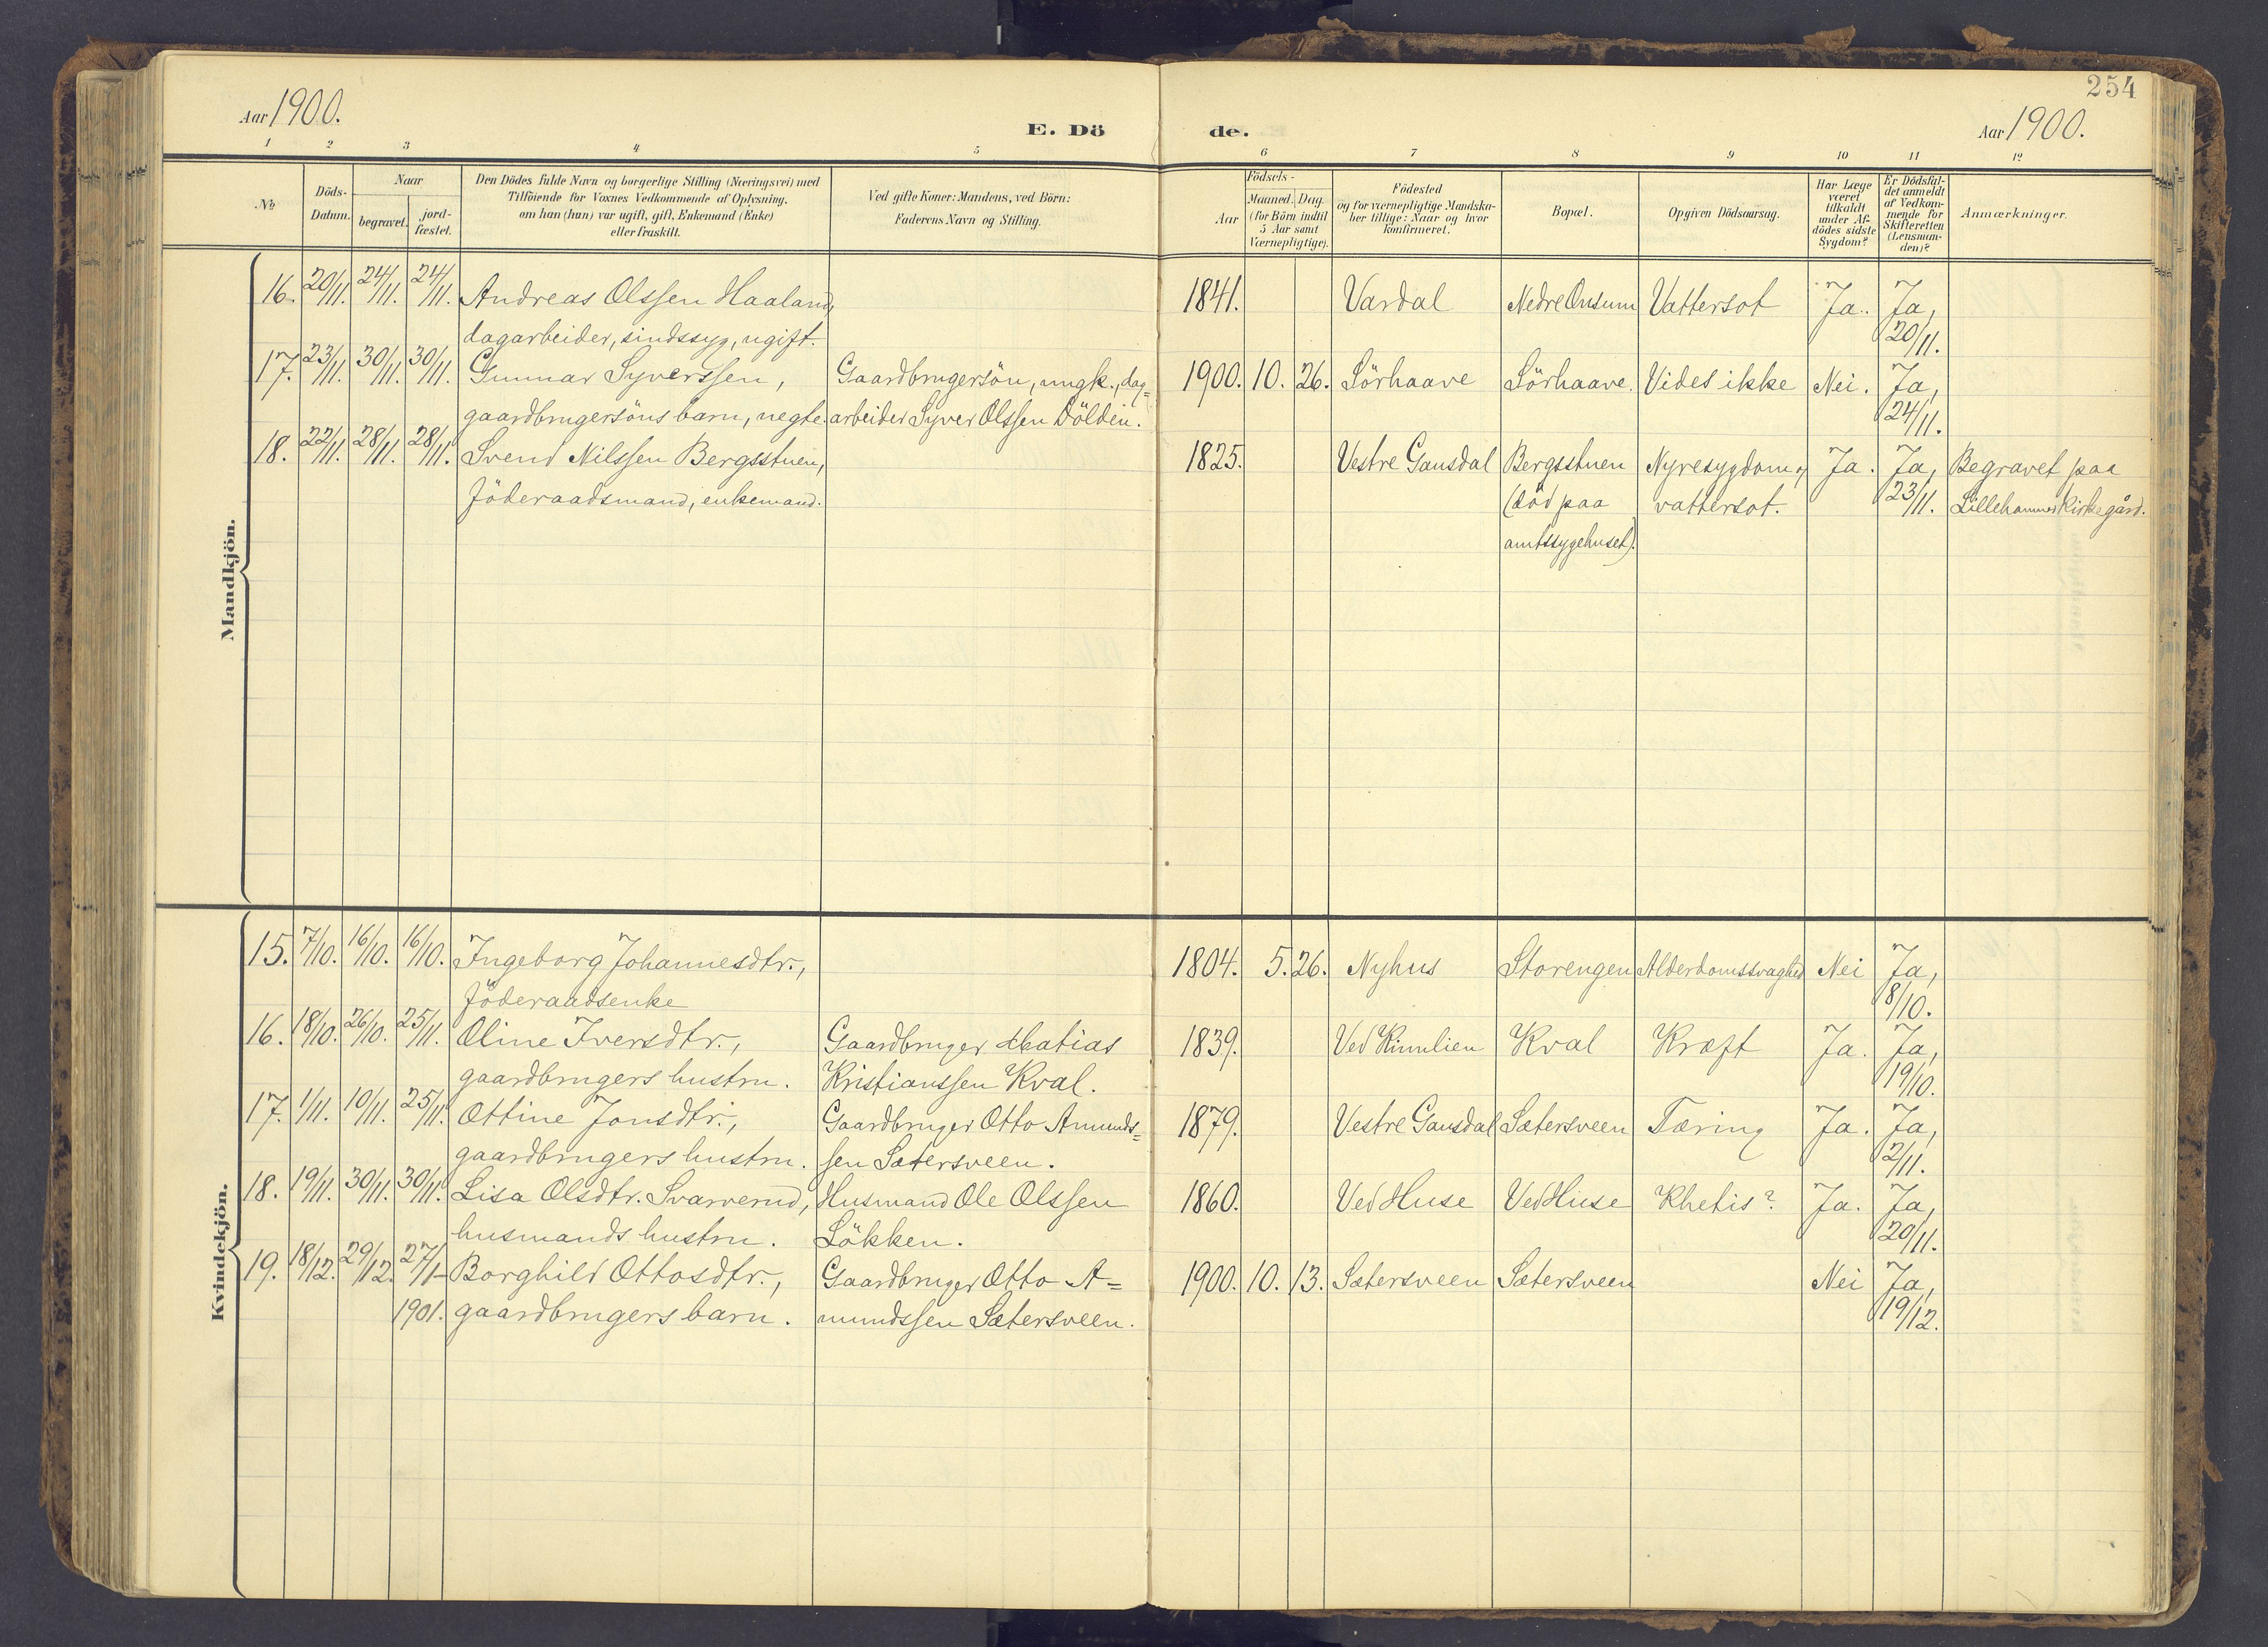 254
Aar 1900.
E. Dö
de.
Aar 1900.
1 2 3 4 5 6 7 8 9 10 11 12
№
Döds-
Datum.
Naar
begravet.
jord-
fæstet.
Den Dödes fulde Navn og borgerlige Stilling (Næringsvei) med
Tilföiende for Voxnes Vedkommende af Oplysning,
om han (hun) var ugift, gift, Enkemand (Enke)
eller fraskilt.
Ved gifte Koner: Mandens, ved Börn:
Faderens Navn og Stilling.
Födsels-
Aar
Maaned. Dag.
(for Börn indtil
5 Aar samt
Værnepligtige).
Födested
og for værnepligtige Mandska-
ber tillige: Naar og hvor
konfirmeret.
Bopæl.
Opgiven Dödsaarsag.
Har Læge
været
tilkaldt
under Af-
dödes sidste
Sygdom?
Er Dödsfal-
det anmeldt
af Vedkom-
mende for
Skifteretten
(Lensman-
den)?
Anmærkninger.
Mandkjön.
16. 20/11. 24/11. 24/11. Andreas Olssen Haaland, 1841. Vardal Nedre Onsum Vattersot Ja. Ja,
dagarbeider, sindssyg, ugift. 20/11.
17. 23/11. 30/11. 30/11. Gunnar Syverssen, Gaardbrugersön, ungk., dag= 1900. 10. 26. Sörhaave Sörhaave. Vides ikke Nei. Ja,
gaardbrugersöns barn, uegte. arbeider Syver Olssen Dölden. 24/11.
18. 22/11. 28/11. 28/11. Svend Nilssen Bergsstuen, 1825. Vestre Gausdal Bergsstuen Nyresygdom og Ja. Ja, Begravet paa
föderaadsmand, enkemand. (död paa vattersot. 23/11. Lillehammer Kirkegård.
amtssygehuset).
Kvindekjön.
15. 7/10. 16/10. 16/10. Ingeborg Johannesdtr., 1804. 5. 26. Nyhus Storengen Alderdomssvaghed Nei Ja,
föderaadsenke 8/10.
16. 18/10. 26/10. 25/11. Oline Iversdtr., Gaardbruger Matias 1839. Ved Rinnlien Kval Kræft Ja. Ja,
gaardbrugers hustru. Kristianssen Kval. 19/10.
17. 1/11. 10/11. 25/11. Ottine Jonsdtr., Gaardbruger Otto Amunds= 1879. Vestre Gausdal Sætersveen Tæring Ja. Ja,
gaardbrugers hustru. sen Sætersveen. 2/11.
18. 19/11. 30/11. 30/11. Lisa Olsdtr. Svarverud, Husmand Ole Olssen 1860. Ved Huse Ved Huse Khetis? Ja. Ja,
husmands hustru. Lökken. 20/11.
19. 18/12. 29/12. 27/1- Borghild Ottosdtr., Gaardbruger Otto A= 1900. 10. 13. Sætersveen Sætersveen Nei Ja,
1901. gaardbrugers barn. mundssen Sætersveen. 19/12.